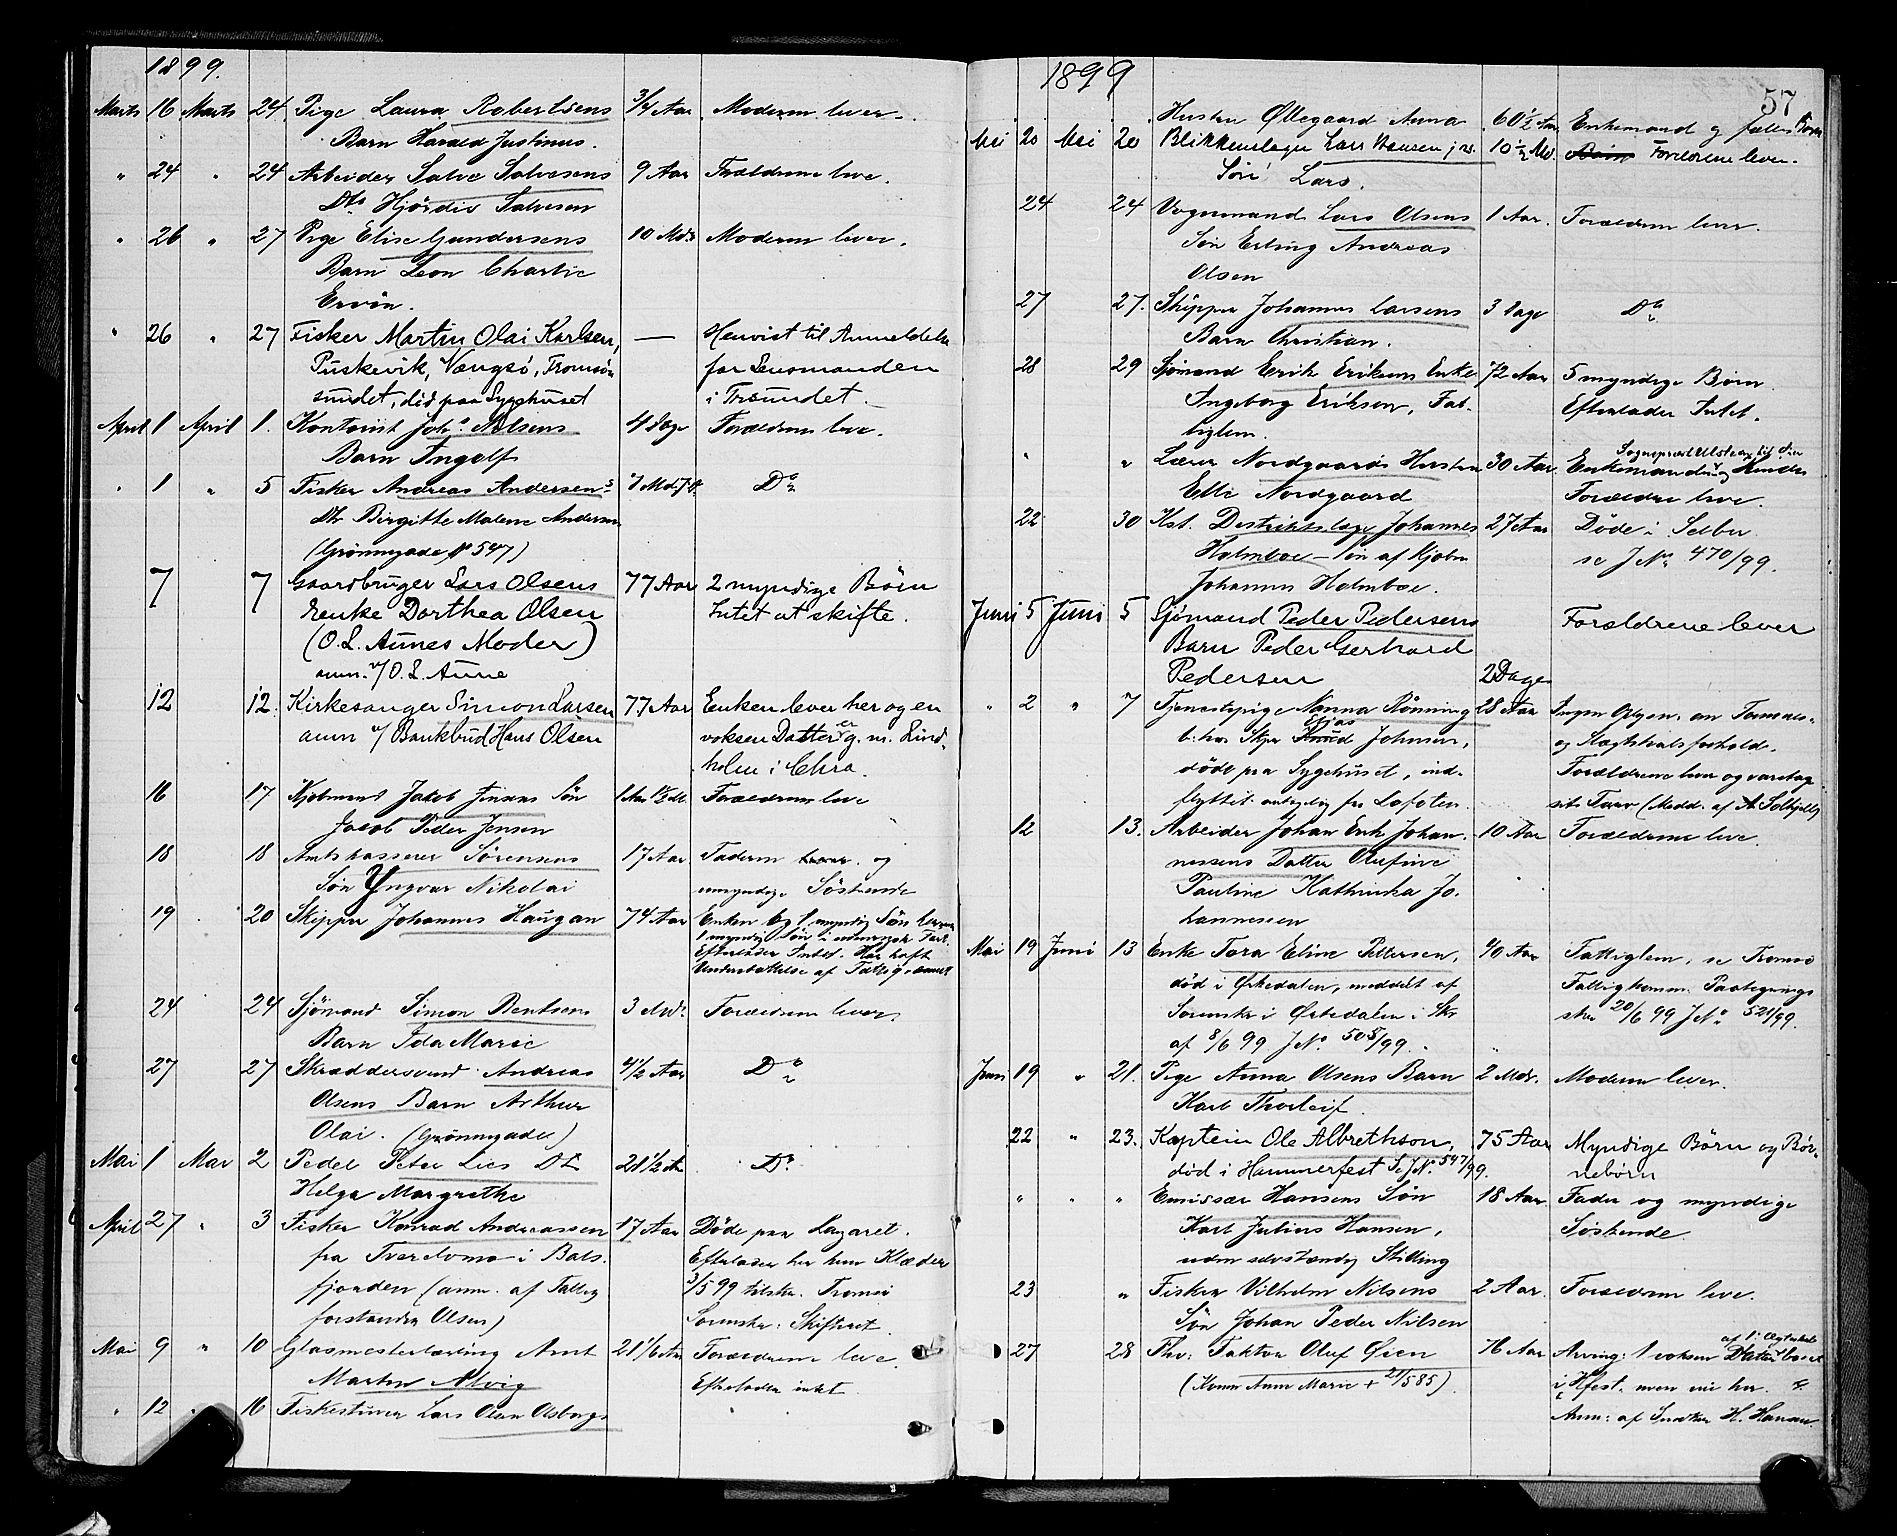 1899.
Marts 16 Marts 24 Pige Laura Robertsens 3/4 Aar Moderen lever.
Barn Harald Justinus.
" 24 " 24 Arbeider Salve Salvesens 9 Aar Forældrene leve.
Dtr Hjørdis Salvesen
" 26 " 27 Pige Elise Gundersens 10 Mdr Moderen lever.
Barn Leon Charlie
Ervin.
" 26 " 27 Fisker Martin Olai Karlsen, — Henvist til Anmeldelse
Puskevik, Vængsö, Tromsö- for Lensmanden
sundet, död paa Sygehuset i Trsundet.
April 1 April 1. Kontorist Johs Nilsens 4 Dage Forældrene leve.
Barn Ingolf
" 1 " 5 Fisker Andreas Andersens 7 Md. Do
Dtr Birgitte Malene Andersen
(Grønnegade No 547)
7 7 Gaardbruger Lars Olsens 77 Aar 2 myndige Börn
Enke Dorthea Olsen Intet at skifte.
(O. L. Aunes Moder)
anm. v/ O. L. Aune
12 12. Kirkesanger Simon Larsen 77 Aar Enken lever her og en
anm v/ Bankbud Hans Olsen voksen Datter er g. m. Lind-
holm i Chra.
16 17 Kjøbmand Jakob Jensens Søn 1 Aar 1 1/2 Md. Forældrene leve
Jacob Peder Jensen
18 18 Amtskasserer Sörensens 17 Aar Faderen lever og
Søn Yngvar Nikolai umyndige Söskende
19 20 Skipper Johannes Haugan 74 Aar Enken og 1 myndig Søn
1 myndig Søn i udenrigsk Fart.
Efterlader Intet. Har havt
Understøttelse af Fattigvæsenet
24 24 Sjömand Simon Bentsens 3 Mdr. Forældrene lever.
Barn Ida Marie
27 27 Skræddersvend Andreas 4 1/2 Aar Do
Olsens Barn Arthur
Olai. (Grønnegade)
Mai 1 Mai 2 Pedel Peter Lies Dtr 21 1/2 Aar Do
Helga Margrethe
April 27 " 3 Fisker Konrad Andreassen 17 Aar Döde paa Lazaret.
fra i Bals- Efterlader her kun Klæder
fjorden (anm. af Fattig- 3/5 99 tilskr. Tromsö
forstander Olsen) Sorenskr. Skifteret.
Mai 9 " 10 Glasmesterlærling Arnt 21 1/6 Aar Forældrene leve.
Martin Alvig Efterlader intet.
" 12 " 16 Lars Olsen
1899
57
Hustru Øllegaard Anna 60 1/2 Aar Enkemand og fælles Børn
Mai 20 Mai 20 Blikkenslager Lars Hansen jr. 10 1/2 Md. Børn Forældrene lever.
Søn Lars.
24 24 Vognmand Lars Olsens 1 Aar. Forældrene lever.
Søn Erling Andreas
Olsen
27 27. Skipper Johannes Larsens 3 Dage Do
Barn Christian.
28 29 Sjömand Erik Eriksens Enke 72 Aar 5 myndige Börn.
Ingeborg Eriksen, Fat- Efterlader Intet.
tiglem.
" " Lærer Nordgaards Hustru 30 Aar. Enkemand og Hendes
Elli Nordgaard Forældre leve.
22 30 Kst. Distriktslæge Johannes 27 Aar Döde i Selbu
Holmboe — Søn af Kjøbm se J No 470/99.
Johannes Holmboe.
Juni 5 Juni 5 Sjömand Peder Pedersens Forældrene lever
Barn Peder Gerhard
Pedersen 2 Dage
" 2 " 7 Tjenestepige Nanna Rönning 28 Aar Ingen Oplysn. om Formues-
b. hos Skpr Elias Knud Johnsen, og Slægtskabsforholde.
døde paa Sygehuset, ind- Forældrene lever og varetag
flyttet antagelig fra Lofoten sit Tarv (Medd. af A. Solhjell)
12 13. Arbeider Johan Erik Johan- 10 Aar Forældrene leve.
nessens Datter Olufine
Pauline Kathinka Jo-
hannessen
Mai 19 Juni 13 Enke Tora Eline Pettersen, 40 Aar Fattiglem, se Tromsö
död i Orkedalen, meddelt af Fattigkomm. Paategnings
Sorenskr i Orkedalen i Skr skr 20/6 99 J No 521/99.
af 8/6 99 J No 505/99.
Juni 19 " 21. Pige Anna Olsens Barn 2 Mdr. Moderen lever.
Karl Thorleif.
22 " 23. Kaptein Ole Albrethson, 75 Aar Myndige Börn og Bör-
död i Hammerfest Se J No 547/99. nebörn
" " " Emissær Hansens Søn 18 Aar Fader og myndige
Karl Julius Hansen, Söskende
uden selvstændig Stilling
23 " Fisker Vilhelm Nilsens 2 Aar. Forældrene leve.
Søn Johan Peder Nilsen
27 28 Fhv. Faktor Oluf Øien 76 Aar Arving: 1 voksen Datter af 1. Ægteskab
(Konen Anne Marie + 21/5 85). i Hfest. men nu her.
Anm: af Snedker H. Hansen.